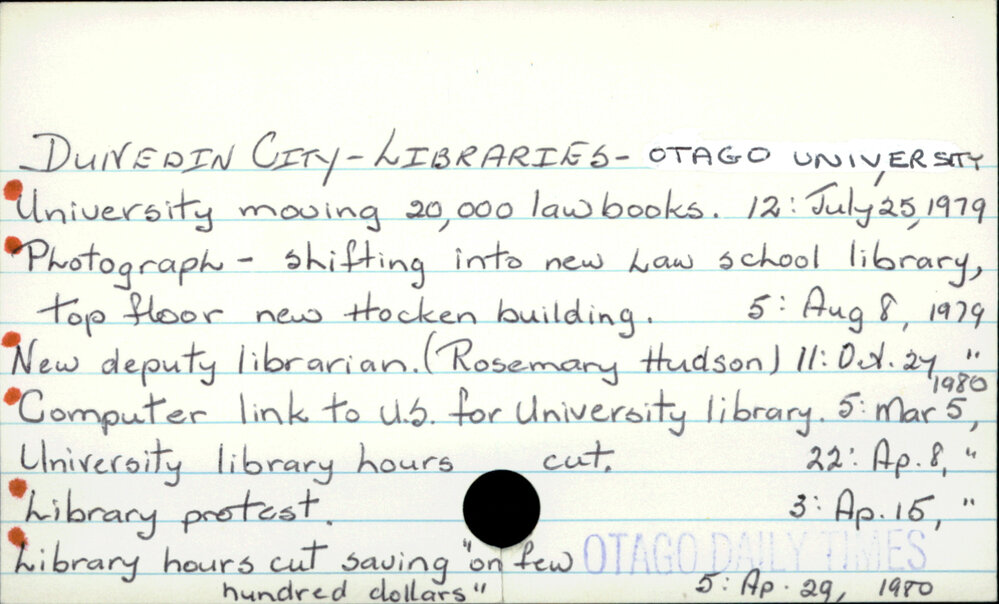 DUNEDIN CITY - LIBRARIES - OTAGO UNIVERSITY
University moving 20,000 law books. 12: July 25, 1979
Photograph - shifting into new Law school library,
top floor new Hocken building. 5: Aug 8, 1979
New deputy librarian. (Rosemary Hudson) 11: Oct. 27 "
1980
Computer link to U.S. for University library. 5: Mar 5,
University library hours cut. 22: Ap. 8, "
Library protest. 3: Ap. 15, "
Library hours cut saving "on few
OTAGO DAILY TIMES
hundred dollars" 5: Ap. 29, 1980